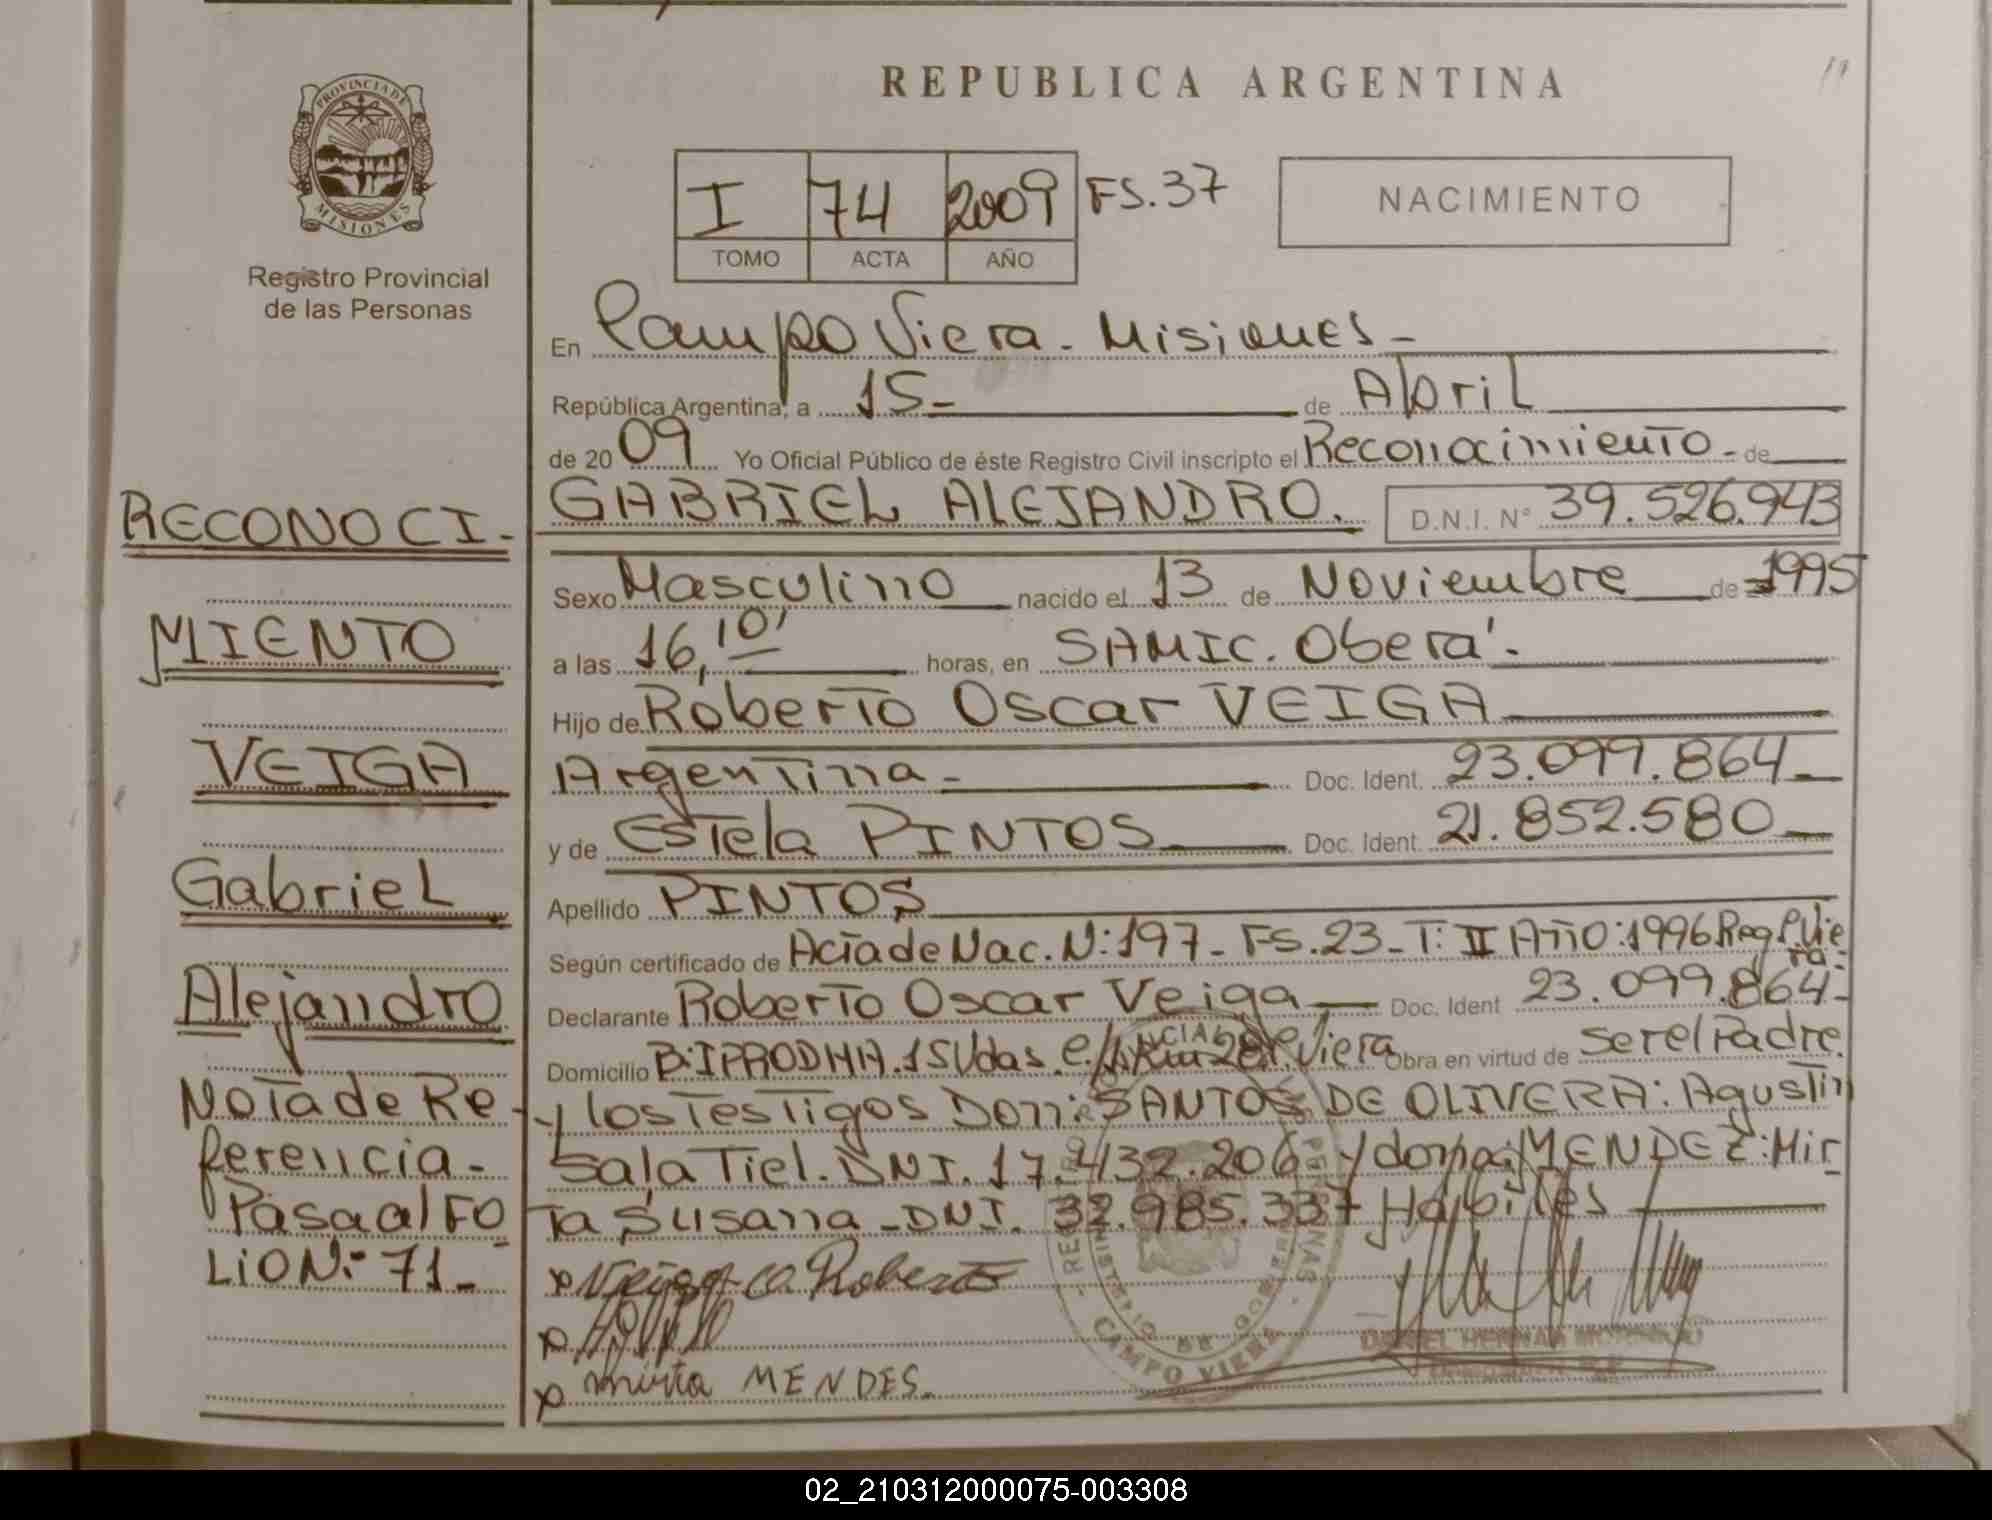 REPUBLICA ARGENTINA
PROVINCIA DE
MISIONES
Registro Provincial
de las Personas
I 74 2009 FS. 37
TOMO ACTA AÑO
NACIMIENTO
En Campo Viera - Misiones -
República Argentina, a 15 - de Abril
de 20 09 Yo Oficial Público de éste Registro Civil inscripto el Reconocimiento - de
GABRIEL ALEJANDRO. D.N.I. N° 39.526.943
Sexo Masculino nacido el 13 de Noviembre de 1995
a las 16,10' horas, en SAMIC. Oberá. -
Hijo de Roberto Oscar VEIGA
Argentina - Doc. Ident. 23.099.864 -
y de Estela PINTOS Doc. Ident. 21.852.580
Apellido PINTOS
Según certificado de Acta de Nac. N: 197 - FS. 23 - T: II Año: 1996 Reg C. Vie
ra -
Declarante Roberto Oscar Veiga Doc. Ident 23.099.864 -
Domicilio B: IPRODHA. 15 Vdas. Km 28 C. Viera Obra en virtud de ser el Padre.
y los Testigos Don: SANTOS DE OLIVERA: Agustin
Sala Tiel. DNI. 17.432.206 y doña MENDEZ: Mir
ta Susana - DNI. 32.985.337 Habiles
x Veiga O. Roberto
x
x mirta MENDES.
RECONOCI-
MIENTO
VEIGA
Gabriel
Alejandro
Nota de Re-
ferencia -
Pasa al FO
LiO N:- 71 -
CAMPO VIERA
02_210312000075-003308